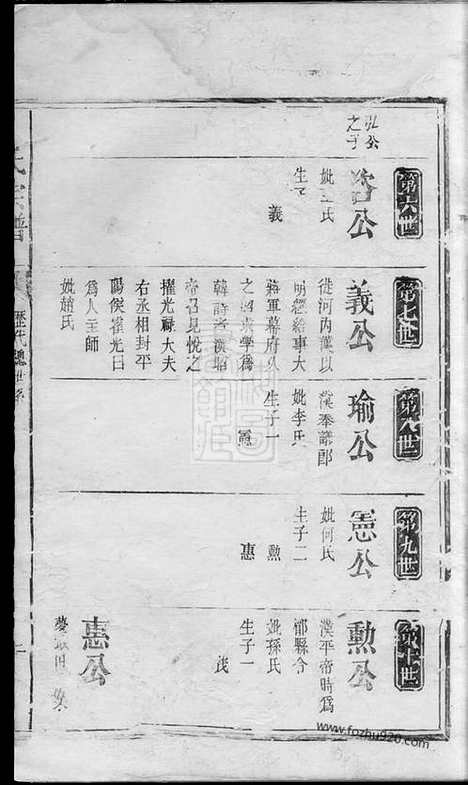 第六世
公
弘公
之子
妣王氏
生子
義
第七世
義公
從河內蔡以
明經給事大
將軍幕府久
之詔求學爲
韓詩者漢昭
帝召見悅之
擢光祿大夫
右丞相封平
陽侯霍光曰
爲人主師
妣趙氏
第八世
瑜公
漢奉議郎
妣李氏
生子一
憲
第九世
憲公
妣何氏
生子二
勲
惠
第十世
勲公
漢平帝時爲
郁縣令
妣孫氏
生子一
茂
惠公
氏宗譜
歷代總世系
www.fozhu920.com